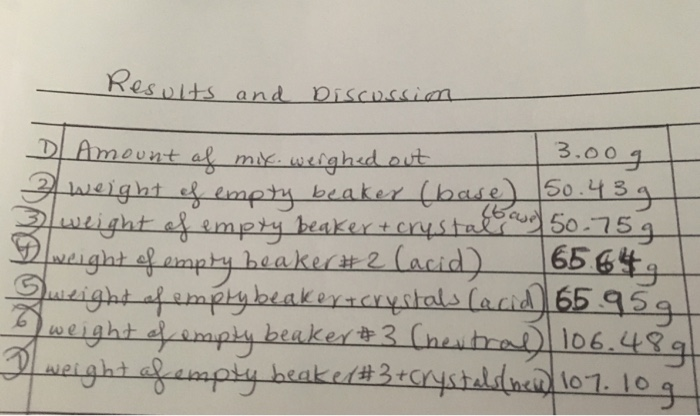 Results and Discussion
1) Amount of mix. weighed out 3.00 g
2) weight of empty beaker (base) 50.43 g
3) weight of empty beaker + crystals (base) 50.75 g
4) weight of empty beaker #2 (acid) 65.64 g
5) weight of empty beaker + crystals (acid) 65.95 g
6) weight of empty beaker #3 (neutral) 106.48 g
7) weight of empty beaker #3 + crystals (neu) 107.10 g